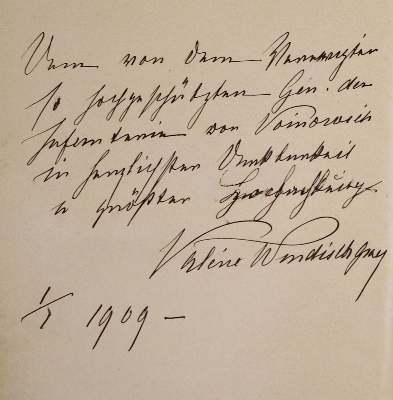 Dem von dem Verewigten
so hochgeschätzten Gen. der
Infanterie von Woinovich
in herzlichster Dankbarkeit
u größter Hochachtung
Valérie Windischgraetz
1/5 1909 –